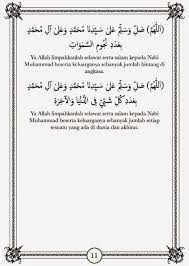 (اَللّٰهُمَّ) صَلِّ وَسَلِّمْ عَلَىٰ سَيِّدِنَا مُحَمَّدٍ وَعَلَىٰ آلِ مُحَمَّدٍ
بِعَدَدِ نُجُومِ السَّمٰوَاتِ
Ya Allah limpahkanlah selawat serta salam kepada Nabi
Muhammad beserta keluarganya sebanyak jumlah bintang di
angkasa.
(اَللّٰهُمَّ) صَلِّ وَسَلِّمْ عَلَىٰ سَيِّدِنَا مُحَمَّدٍ وَعَلَىٰ آلِ مُحَمَّدٍ
بِعَدَدِ كُلِّ شَيْئٍ فِى الدُّنْيَا وَالْآخِرَةِ
Ya Allah limpahkanlah selawat serta salam kepada Nabi
Muhammad beserta keluarganya sebanyak jumlah setiap
sesuatu yang ada di dunia dan akhirat.
11